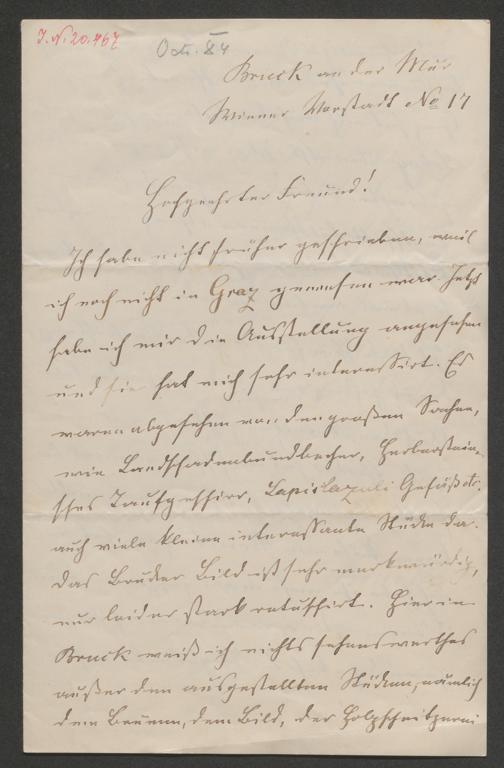 J.N. 20.467
Oct. 84
Bruck an der Mur
Wiener Vorstadt No 17
Hochgeehrter Freund!
Ich habe nicht früher geschrieben, weil
ich noch nicht in Graz gewesen war. Jetzt
habe ich mir die Ausstellung angesehen
und sie hat mich sehr interessirt. Es
waren abgesehen von den großen Sachen,
wie Landschadenbundbecher, Herberstein-
sches Taufgeschirr, Lapislazuli Gefäß etc.
auch viele kleine interessante Stücke da.
Das Brucker Bild ist sehr merkwürdig,
nur leider stark retuschirt. Hier in
Bruck weiß ich nichts sehenswerthes
außer den ausgestellten Stücken, nämlich
dem Brunnen, dem Bild, der Holzschnitzerei